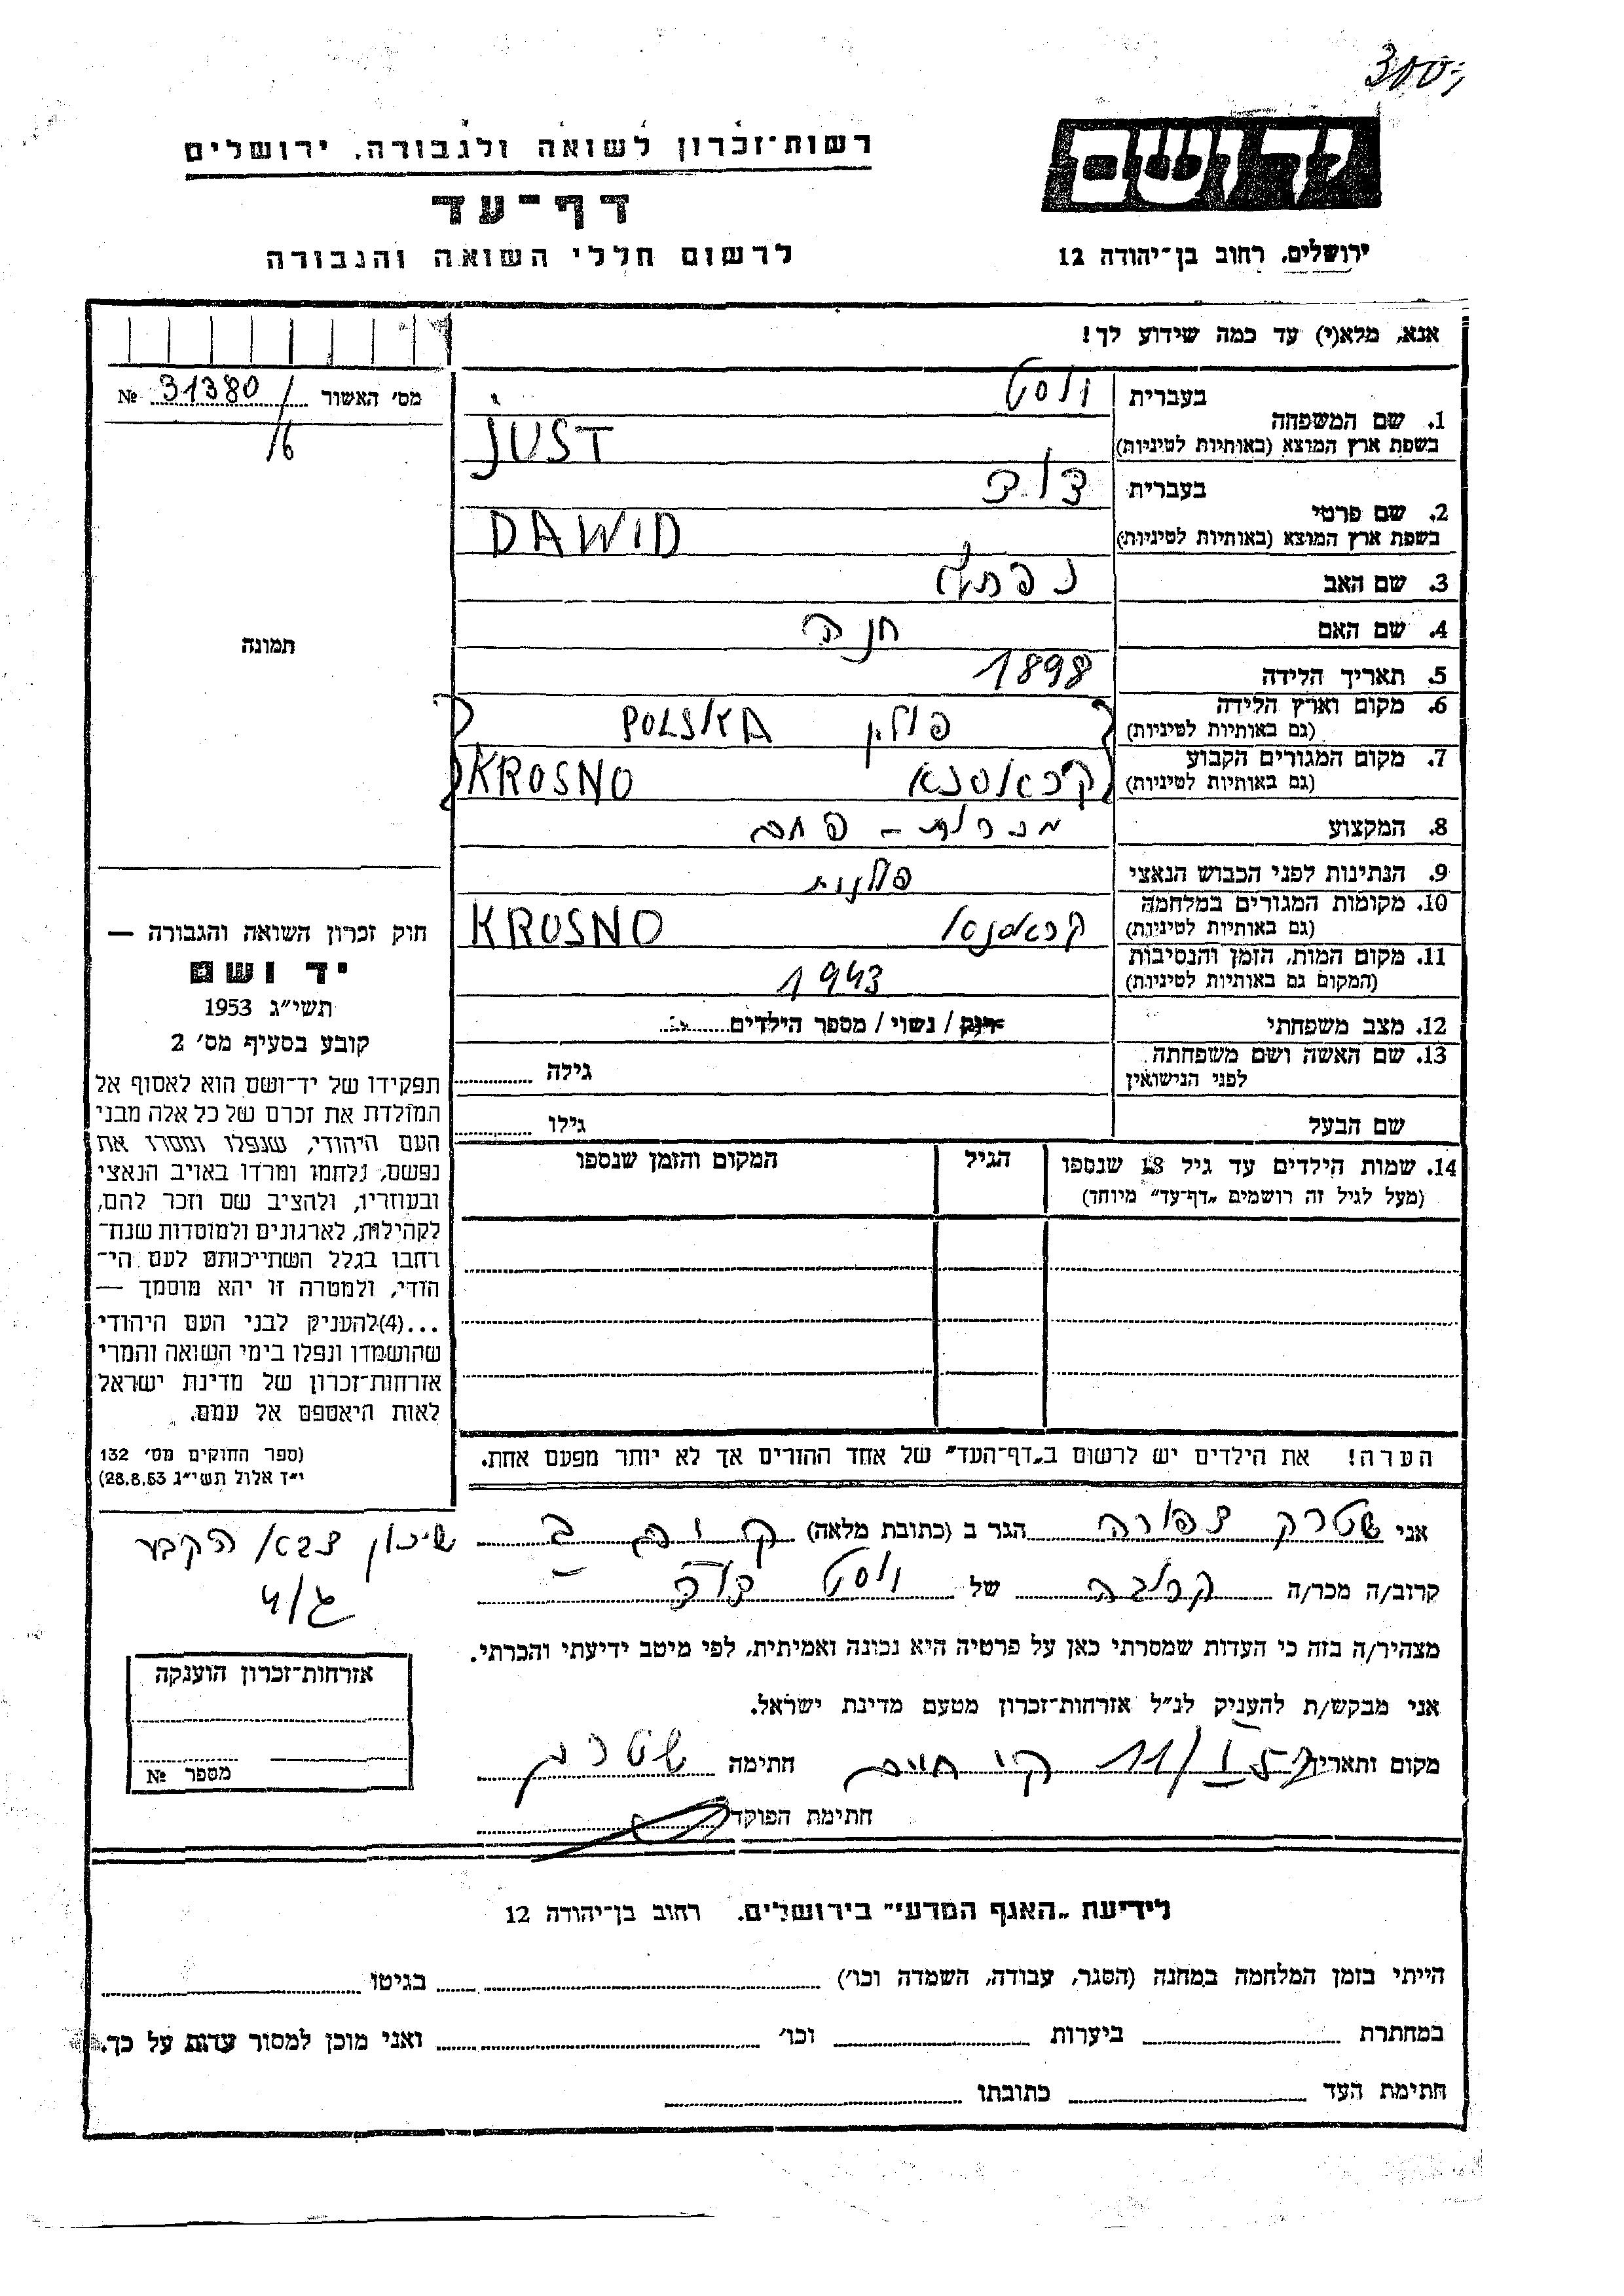 300.-
יד ושם
רשות־זכרון לשואה ולגבורה, ירושלים
דף־עד
לרשום חללי השואה והגבורה
ירושלים, רחוב בן־יהודה 12
אנא, מלא(י) עד כמה שידוע לך!
מס׳ האשור № 31380/16
1. שם המשפחה בעברית יוסט
בשפת ארץ המוצא (באותיות לטיניות) JUST
2. שם פרטי בעברית דוד
בשפת ארץ המוצא (באותיות לטיניות) DAWID
3. שם האב נפתלי
4. שם האם חנה
5. תאריך הלידה 1898
6. מקום וארץ הלידה (גם באותיות לטיניות) פולין POLSKA
7. מקום המגורים הקבוע (גם באותיות לטיניות) קראסנא KROSNO
8. המקצוע
9. הנתינות לפני הכבוש הנאצי פולנית
10. מקומות המגורים במלחמה (גם באותיות לטיניות) KROSNO
11. מקום המות, הזמן והנסיבות (המקום גם באותיות לטיניות) 1943
12. מצב משפחתי רווק / נשוי / מספר הילדים
13. שם האשה ושם משפחתה לפני הנישואין גילה
שם הבעל גילו
14. שמות הילדים עד גיל 18 שנספו הגיל המקום והזמן שנספו
(מעל לגיל זה רושמים „דף־עד״ מיוחד)
הערה! את הילדים יש לרשום ב„דף־העד״ של אחד ההורים אך לא יותר מפעם אחת.
תמונה
חוק זכרון השואה והגבורה —
יד ושם
תשי״ג 1953
קובע בסעיף מס׳ 2
תפקידו של יד־ושם הוא לאסוף אל
המולדת את זכרם של כל אלה מבני
העם היהודי, שנפלו ומסרו את
נפשם, נלחמו ומרדו באויב הנאצי
ובעוזריו, ולהציב שם וזכר להם,
לקהילות, לארגונים ולמוסדות שנח־
רחבו בגלל השתייכותם לעם הי־
הודי, ולמטרה זו יהא מוסמך —
...(4)להעניק לבני העם היהודי
שהושמדו ונפלו בימי השואה והמרי
אזרחות־זכרון של מדינת ישראל
לאות היאספם אל עמם.
(ספר החוקים מס׳ 132
י״ד אלול תשי״ג 28.8.53)
אני שטרק צפורה הגר ב (כתובת מלאה) שיכון צבא הקבע
קרוב/ה מכר/ה קרובה של יוסט דוד
מצהיר/ה בזה כי העדות שמסרתי כאן על פרטיה היא נכונה ואמיתית, לפי מיטב ידיעתי והכרתי.
אני מבקש/ת להעניק לנ״ל אזרחות־זכרון מטעם מדינת ישראל.
מקום ותאריך 11/I קר חיים חתימה שטרק
חתימת הפוקד
אזרחות־זכרון הוענקה
מספר №
לידיעת „האגף המדעי״ בירושלים, רחוב בן־יהודה 12
הייתי בזמן המלחמה במחנה (הסגר, עבודה, השמדה וכו׳) בגיטו
במחתרת ביערות וכו׳ ואני מוכן למסור עדות על כך.
חתימת העד כתובתו